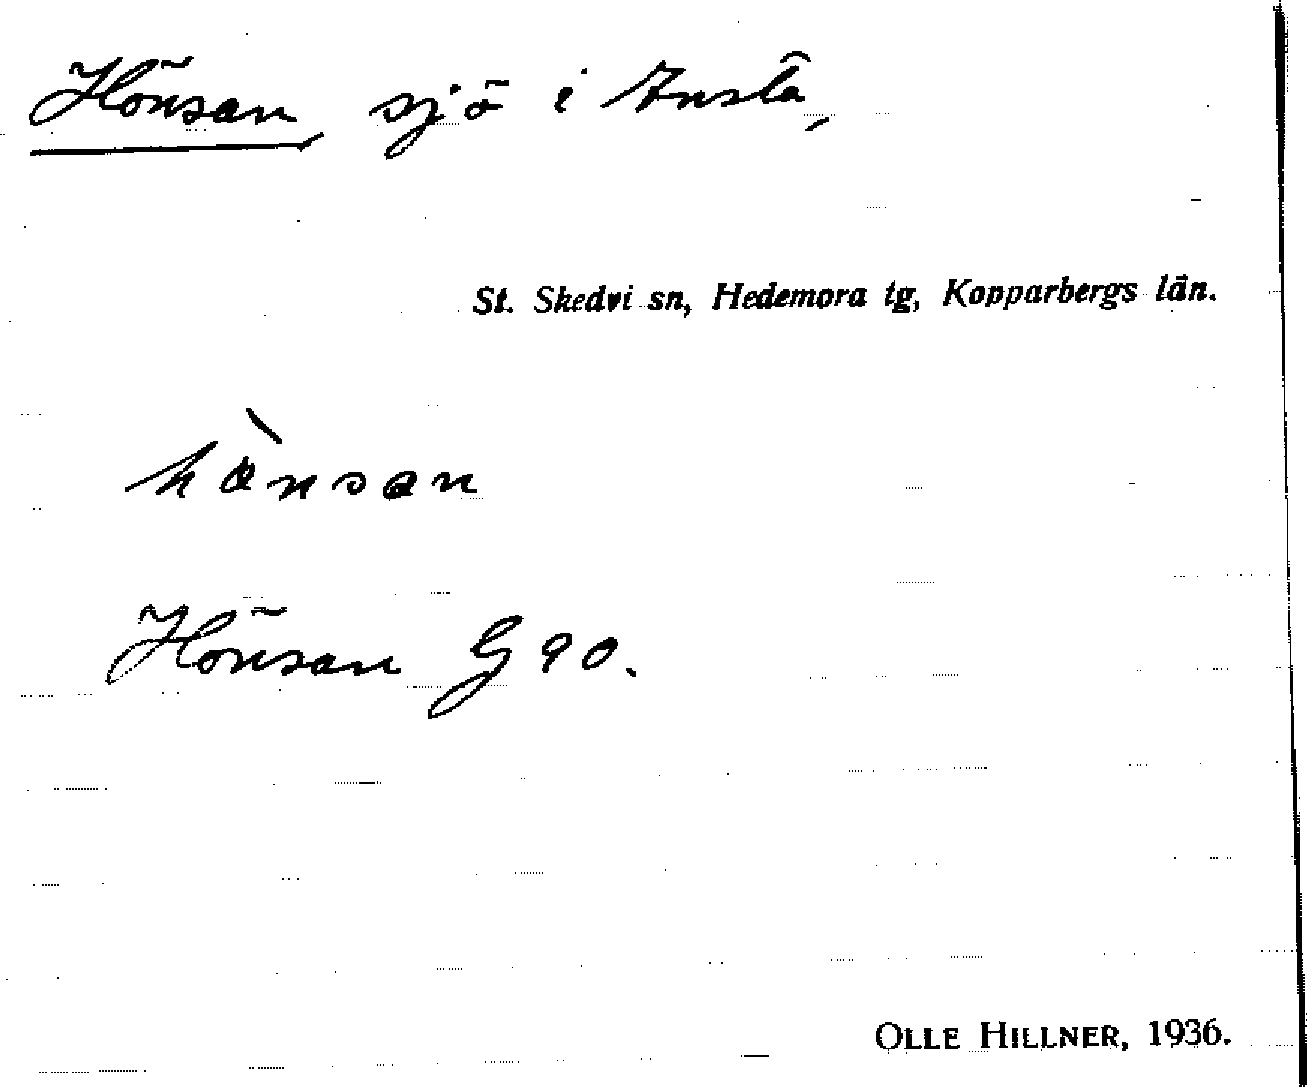 Hönsan, sjö i Anstå,
St. Skedvi sn, Hedemora tg, Kopparbergs län.
hö̀nsan
Hönsan G 90.
OLLE HILLNER, 1936.